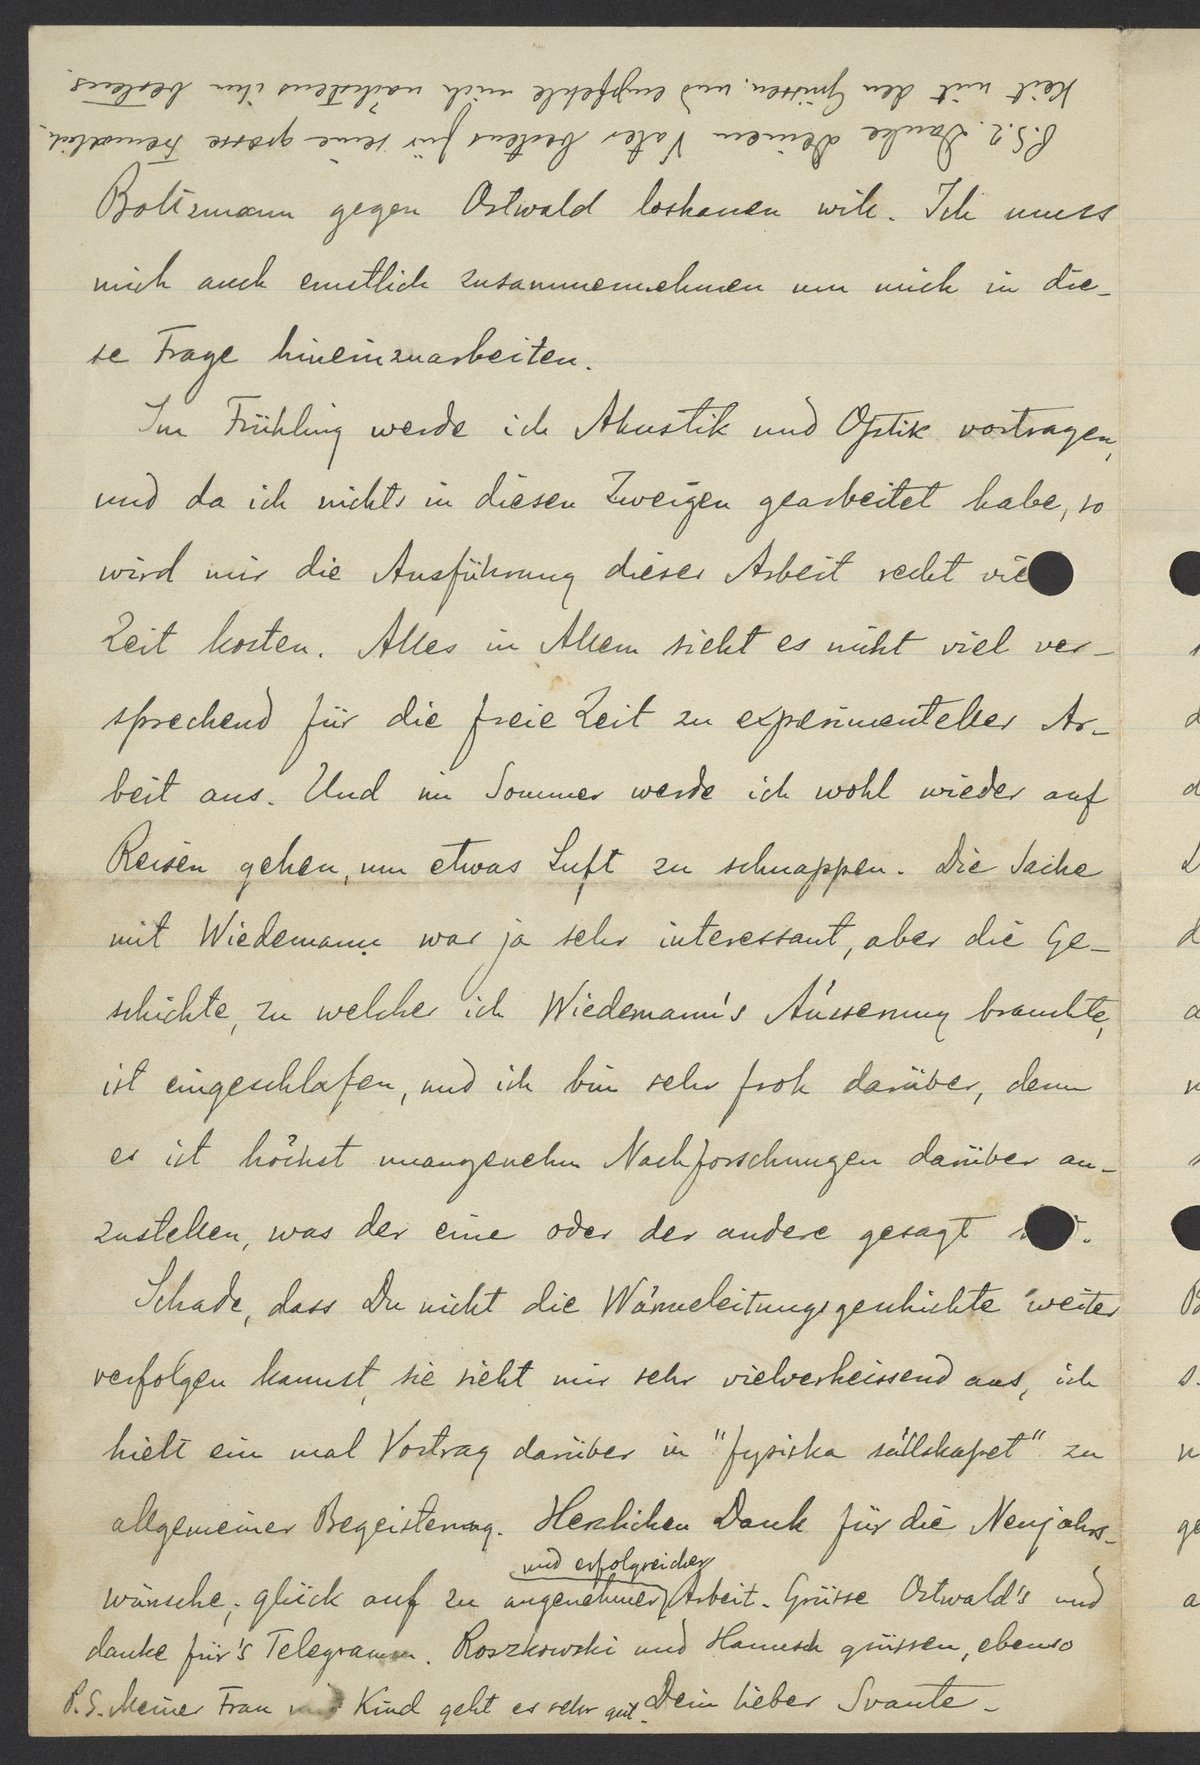 P.S.2. Danke Deinem Vater bestens für seine grosse Freundlich-
keit mit den Grüssen, und empfehle mich nächstens ihm bestens.
Boltzmann gegen Ostwald loshauen will. Ich muss
mich auch ernstlich zusammennehmen um mich in die-
se Frage hineinzuarbeiten.
Im Frühling werde ich Akustik und Optik vortragen,
und da ich nichts in diesen Zweigen gearbeitet habe, so
wird mir die Ausführung dieser Arbeit recht vie
Zeit kosten. Alles in Allem sieht es nicht viel ver-
sprechend für die freie Zeit zu experimenteller Ar-
beit aus. Und im Sommer werde ich wohl wieder auf
Reisen gehen, um etwas Luft zu schnappen. Die Sache
mit Wiedemann war ja sehr interessant, aber die Ge-
schichte, zu welcher ich Wiedemann's Äusserung brauchte,
ist eingeschlafen, und ich bin sehr froh darüber, denn
es ist höchst unangenehm Nachforschungen darüber an-
zustellen, was der eine oder der andere gesagt
Schade, dass Du nicht die Wärmeleitungsgeschichte weiter
verfolgen kannst, sie sieht mir sehr vielverheissend aus, ich
hielt ein mal Vortrag darüber in "fysiska sällskapet" zu
allgemeiner Begeisterung. Herzlichen Dank für die Neujahrs-
wünsche, glück auf zu angenehmer und erfolgreicher Arbeit. Grüsse Ostwald's und
danke für's Telegramm. Roszkowski und Hamsch grüssen, ebenso
Dein lieber Svante.
P.S. Meiner Frau und Kind geht es sehr gut.